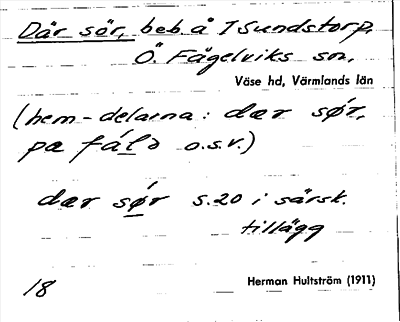 Där sör, beb. å Sundstorp,
Ö. Fågelviks sn,
Väse hd, Värmlands län
(hem-delarna: dær sǿr,
pa fáḷə o.s.v.)
dær sǿ̱r s. 20 i särsk.
tillägg
18
Herman Hultström (1911)